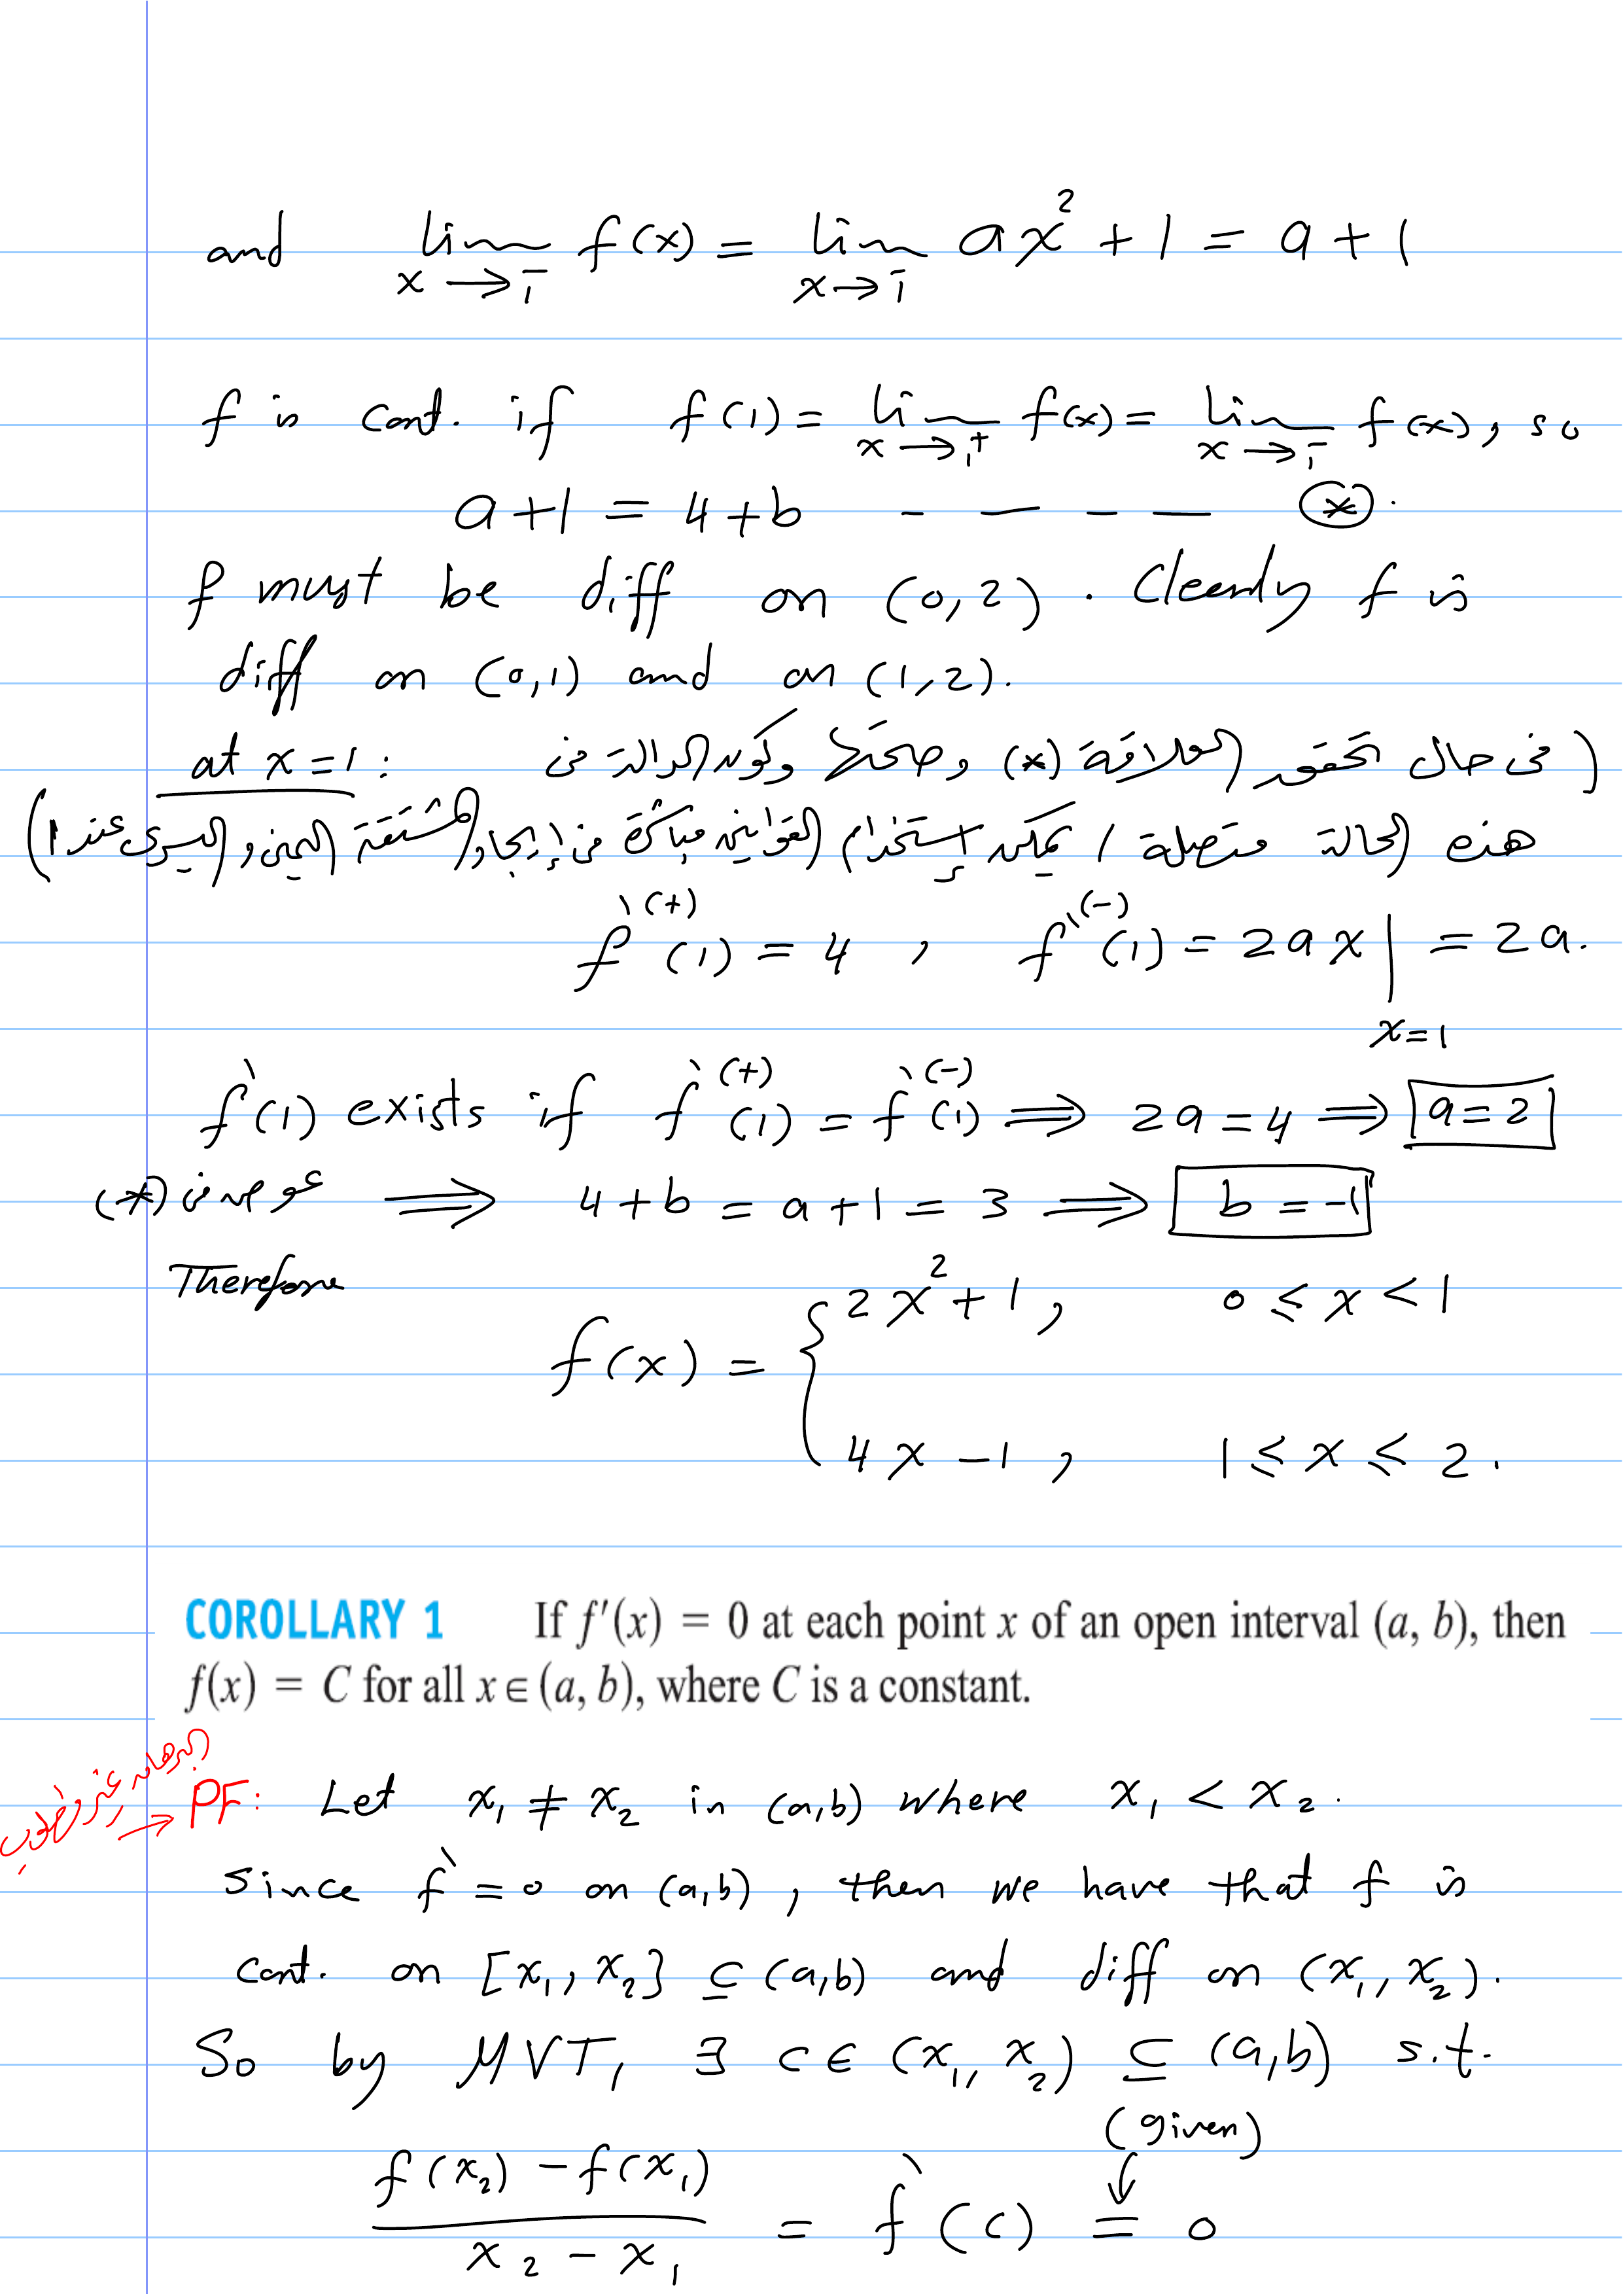 and lim x→1⁻ f(x) = lim x→1⁻ ax² + 1 = a + 1
f is cont. if f(1) = lim x→1⁺ f(x) = lim x→1⁻ f(x), so
a+1 = 4+b - — - — (*).
f must be diff on (0,2). Clearly f is
diff on (0,1) and on (1,2).
at x=1: (فى حال تحقق العلاقة (*) وصحتها وكون الدالة فى
هذه الحالة متصلة، يمكن إستخدام القوانين مباشرة فى إيجاد المشتقة اليمين واليسرى عند 1)
f`⁽⁺⁾(1) = 4 , f`⁽⁻⁾(1) = 2ax | x=1 = 2a.
f`(1) exists if f`⁽⁺⁾(1) = f`⁽⁻⁾(1) ⟹ 2a = 4 ⟹ a = 2
عوض فى (*) ⟹ 4+b = a+1 = 3 ⟹ b = -1
Therefore
f(x) = { 2x² + 1, 0 ≤ x < 1
4x - 1, 1 ≤ x ≤ 2.
COROLLARY 1 If f′(x) = 0 at each point x of an open interval (a, b), then
f(x) = C for all x ∈ (a, b), where C is a constant.
البرهان غير مطلوب
→ PF: Let x₁ ≠ x₂ in (a,b) where x₁ < x₂.
since f` = 0 on (a,b), then we have that f is
cont. on [x₁, x₂] ⊆ (a,b) and diff on (x₁, x₂).
So by MVT, ∃ c ∈ (x₁, x₂) ⊆ (a,b) s.t.
(given)
↓
f(x₂) - f(x₁) / x₂ - x₁ = f`(c) = 0